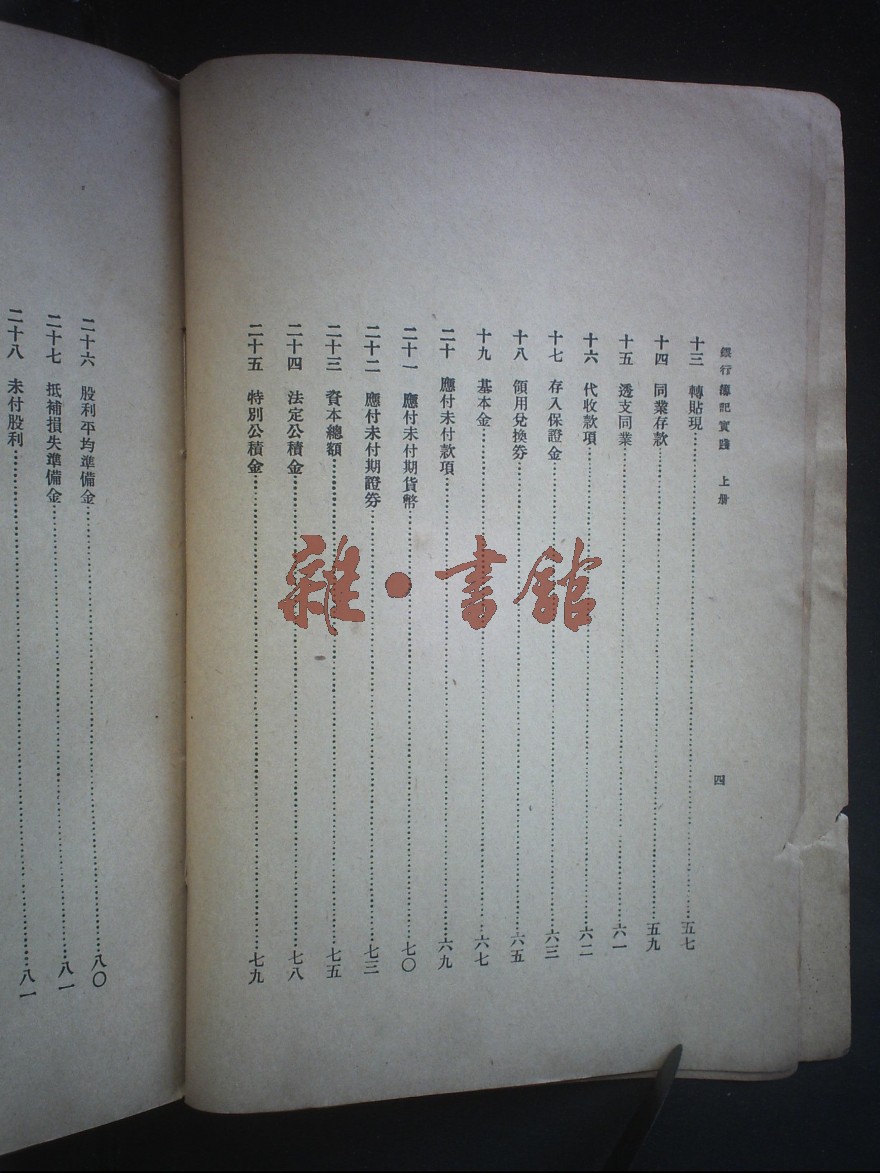 銀行簿記實踐 上册
四
十三 轉貼現 五七
十四 同業存款 五九
十五 透支同業 六一
十六 代收款項 六二
十七 存入保證金 六三
十八 領用兌換券 六五
十九 基本金 六七
二十 應付未付款項 六九
二十一 應付未付期貨幣 七〇
二十二 應付未付期證券 七三
二十三 資本總額 七五
二十四 法定公積金 七八
二十五 特別公積金 七九
二十六 股利平均準備金 八〇
二十七 抵補損失準備金 八一
二十八 未付股利 八一
雜·書館